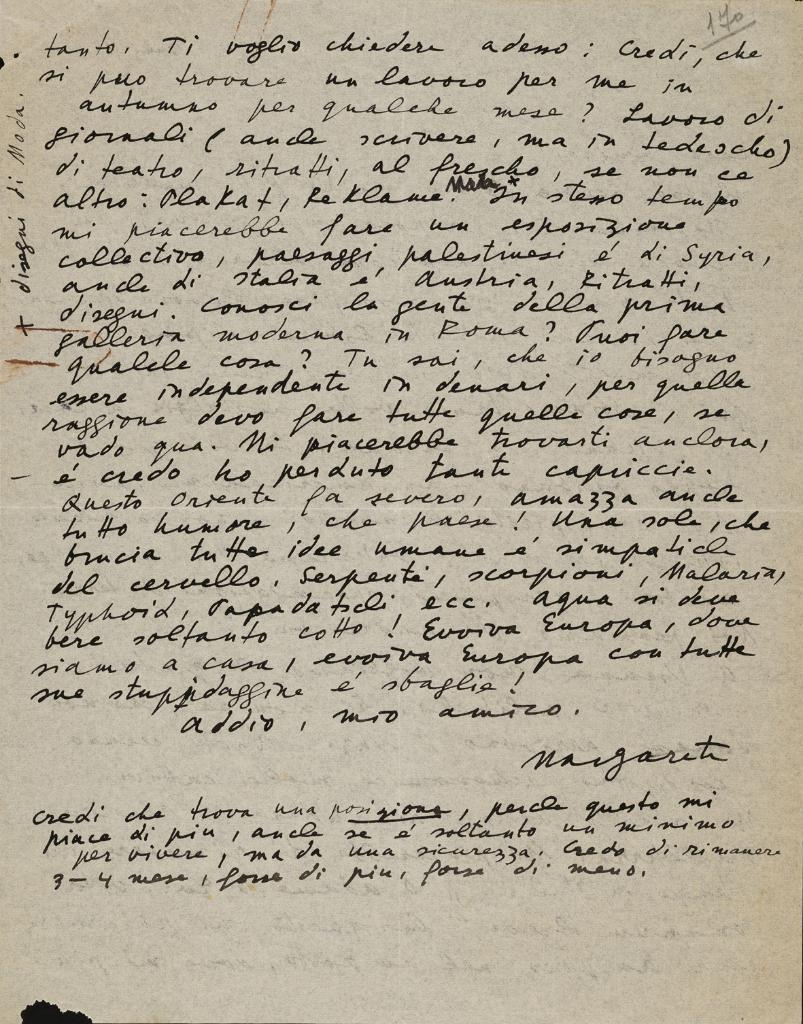 170
tanto. Ti voglio chiedere adesso: Credi, che
si puo trovare un lavoro per me in
autumno per qualche mese? Lavoro di
giornali (anche scrivere, ma in tedescho)
di teatro, ritratti, al frescho, se non ce
altro: Plakat, Reklame. + In stesso tempo
mi piacerebbe fare un esposizione
collectivo, paesaggi palestinesi é di Syria,
anche di Italia é Austria, Ritratti,
disegni. Conosci la gente della prima
galleria moderna in Roma? Puoi fare
qualche cosa? Tu sai, che io bisogno
essere independente in denari, per quella
raggione devo fare tutte quelle cose, se
vado qua. Mi piacerebbe trovarti anchora,
é credo ho perduto tante capriccie.
Questo Oriente fa severo, amazza anche
tutto humore, che paese! Una sole, che
brucia tutte idee umane é simpatiche
del cervello. Serpente, scorpioni, Malaria,
Typhoid, Papadatschi, ecc. aqua si deve
bere soltanto cotto! Evviva Europa, dove
siamo a casa, evviva Europa con tutte
sue stupidaggine é sbaglie!
addio, mio amico.
Margarete
Credi che trova una posizione, perche questo mi
piace di piu, anche se é soltanto un minimo
per vivere, ma da una sicurezza. Credo di rimanere
3-4 mese, forse di piu, forse di meno.
+ disegni di Moda.